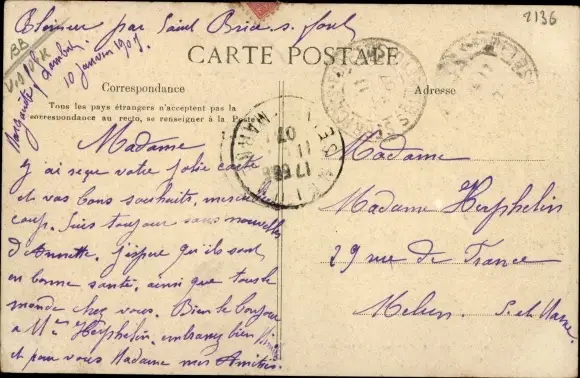 par Saint Brice s. forêt
2136
10 Janvier 1907
CARTE POSTALE
Correspondance
Adresse
Tous les pays étrangers n'acceptent pas la
correspondance au recto, se renseigner à la Poste
Madame
J'ai reçue votre jolie carte
et vos bons souhaits, merci beau
coup. Suis toujours sans nouvelles
d'Annette. J'espère qu'ils sont
en bonne santé, ainsi que tout le
monde chez vous. Bien le bonjour
a Mr Herphelin, embrassez bien
et pour vous Madame mes Amitiés.
Madame
Madame Herphelin
29 rue de France
Melun. S. et Marne.